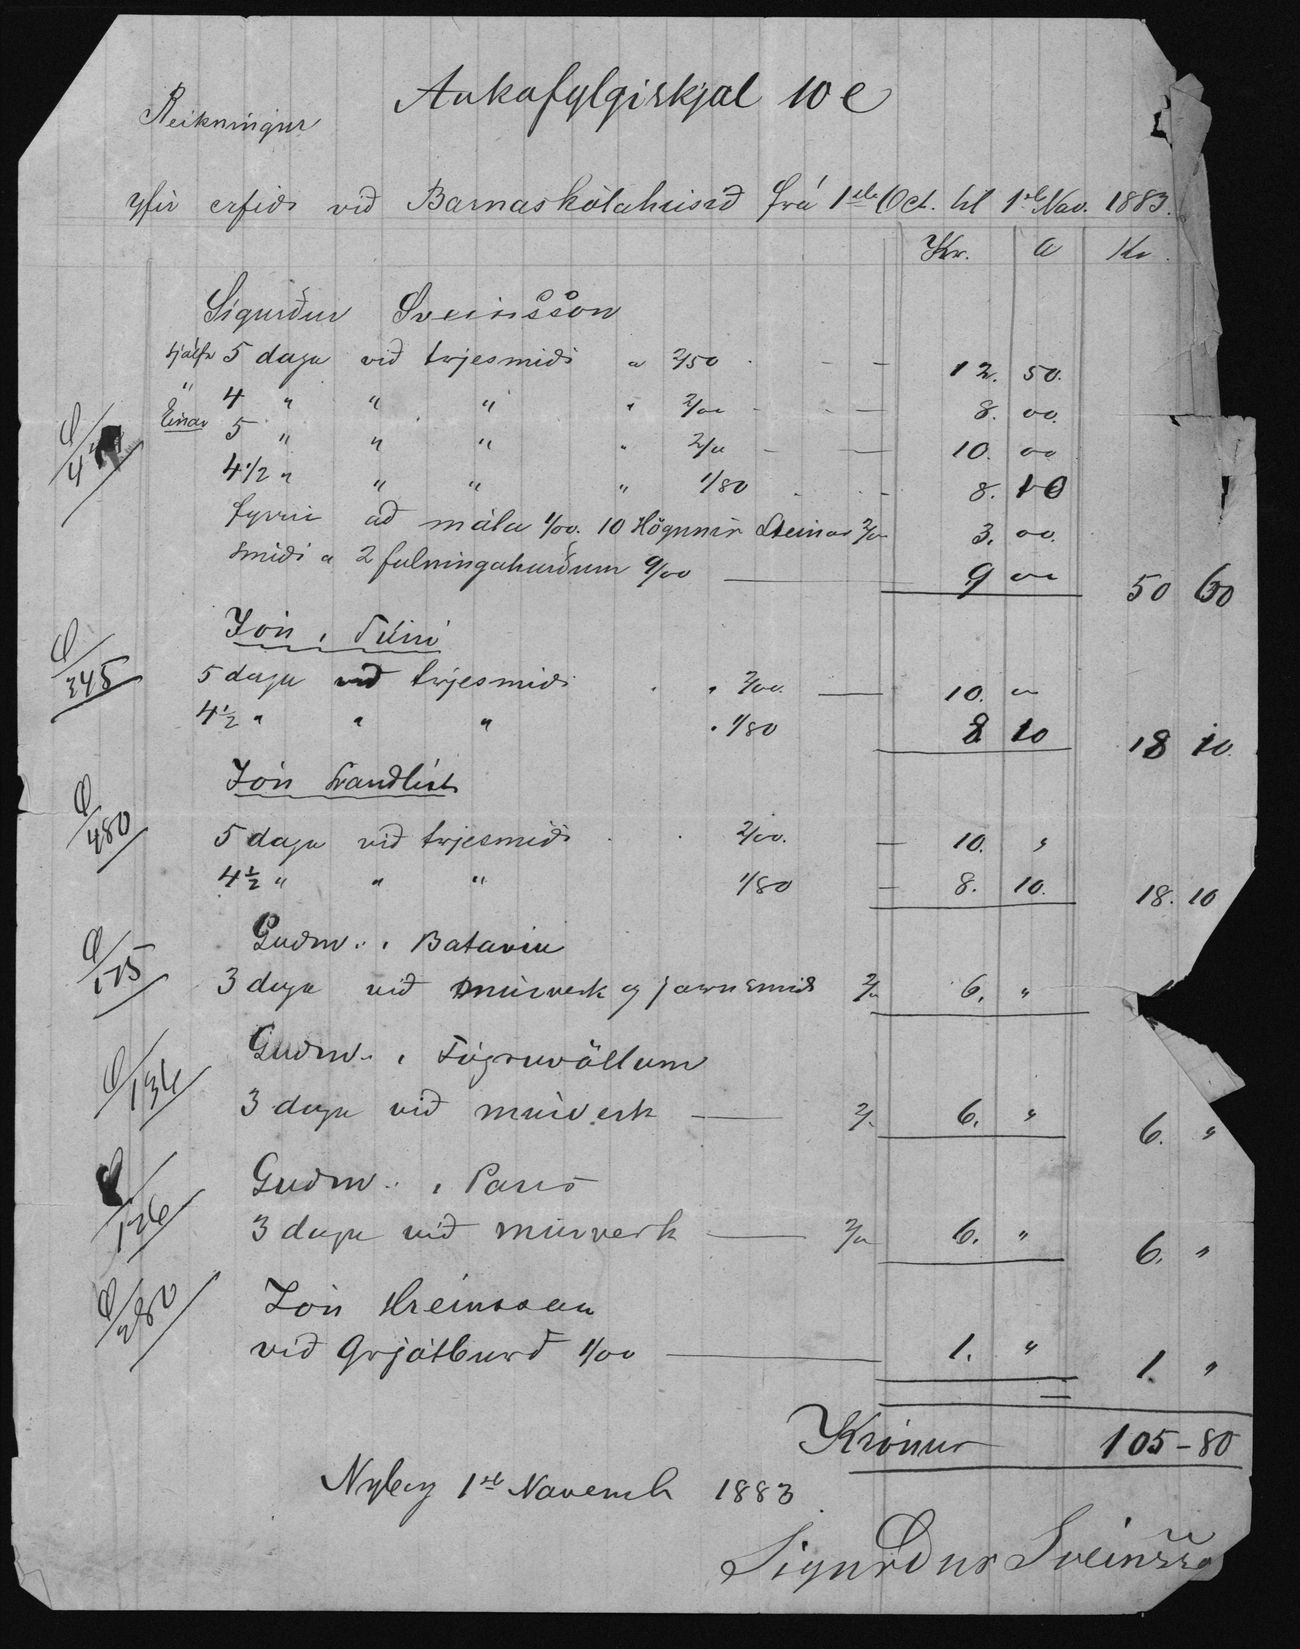 Aukafylgiskjal 10 e
Reikningur
yfir erfiði við Barnaskólahúsið frá 1sta Oct. til 1sta Nov. 1883.
Kr. a Kr.
Sigurður Sveinsson
sjálfr 5 daga við trjesmíði a 2/50 - - 12. 50.
" 4 " " " " 2/00 - - 8. 00.
Einar 5 " " " " 2/00 - — 10. 00
4 1/2 " " " " 1/80 - - 8. 10
fyrir að mála 1/00. 10 Högnnir Steinar 2/00 3. 00.
smíði a 2 fulningahurðum 9/00 — 9 00 50 60
Jón í Túni
5 daga við trjesmíði " 2/00. — 10. "
4 1/2 " " " " 1/80 8 10 18 10.
Jón
5 daga við trjesmíði 2/00. — 10. "
4 1/2 " " " 1/80 - 8. 10. 18. 10
Guðm. í Bataviu
3 daga við múrverk og járnsmíði 2/00 6. "
Guðm. í Fögruvöllum
3 daga við múrverk — 2/. 6. " 6. "
Guðm. í Paris
3 daga við múrverk — 2/00 6. " 6. "
Jón Hreinsson
við Grjótburð 1/00 — 1. " 1. "
Krónur 105-80
Nýbæ 1sta Novemb 1883
Sigurður Sveinsso
345
480
175
134
126
280